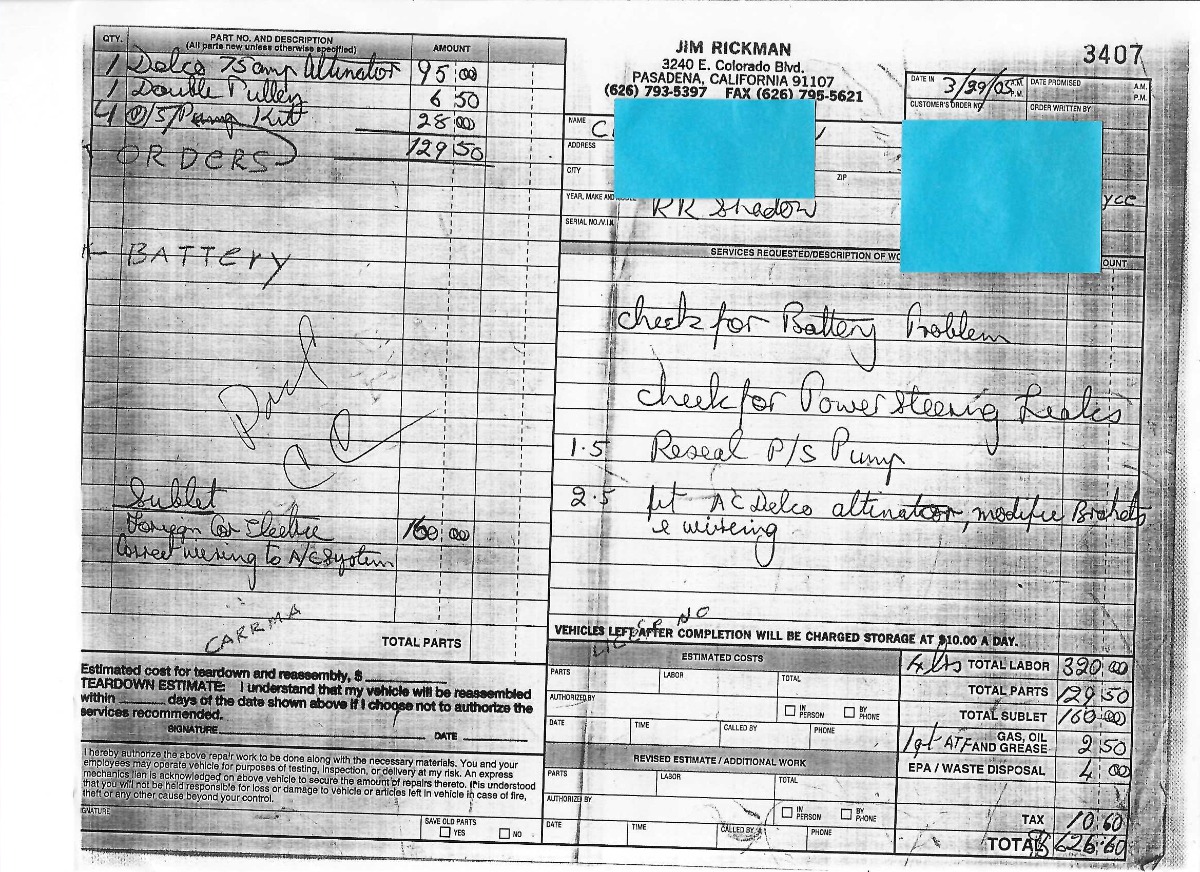 QTY. PART NO. AND DESCRIPTION AMOUNT
(All parts new unless otherwise specified)
1 Delco 75 amp Altinator 95 00
1 Double Pulley 6 50
4 P/S/Pump Kit 28 00
129 50
ORDERS
BATTERY
Paid
CC
Sublet
Foreign Car Electric 160 00
Correct wirering to A/C System
CARRMA
TOTAL PARTS
Estimated cost for teardown and reassembly, $
TEARDOWN ESTIMATE: I understand that my vehicle will be reassembled
within ______ days of the date shown above if I choose not to authorize the
services recommended.
SIGNATURE DATE
I hereby authorize the above repair work to be done along with the necessary materials. You and your
employees may operate vehicle for purposes of testing, inspection, or delivery at my risk. An express
mechanics lien is acknowledged on above vehicle to secure the amount of repairs thereto. It is understood
that you will not be held responsible for loss or damage to vehicle or articles left in vehicle in case of fire,
theft or any other cause beyond your control.
GNATURE
SAVE OLD PARTS
YES NO
JIM RICKMAN
3240 E. Colorado Blvd.
PASADENA, CALIFORNIA 91107
(626) 793-5397 FAX (626) 795-5621
3407
DATE IN 3/29/05 A.M. P.M. DATE PROMISED A.M. P.M.
CUSTOMER'S ORDER NO. ORDER WRITTEN BY
NAME C
ADDRESS
CITY ZIP
YEAR, MAKE AND
RR Shadow yce
SERIAL NO./V.I.N.
SERVICES REQUESTED/DESCRIPTION OF WO OUNT
check for Battery Problem
check for Power Steering Leaks
1.5 Reseal P/S Pump
2.5 fit AC Delco altinator, modifie Brakets
& wirering
LICENSE NO
VEHICLES LEFT AFTER COMPLETION WILL BE CHARGED STORAGE AT $10.00 A DAY.
ESTIMATED COSTS
PARTS LABOR TOTAL
AUTHORIZED BY IN PERSON BY PHONE
DATE TIME CALLED BY PHONE
REVISED ESTIMATE / ADDITIONAL WORK
PARTS LABOR TOTAL
AUTHORIZED BY IN PERSON BY PHONE
DATE TIME CALLED BY PHONE
4 hrs TOTAL LABOR 320 00
TOTAL PARTS 129 50
TOTAL SUBLET 160 00
1qt ATF GAS, OIL AND GREASE 2 50
EPA / WASTE DISPOSAL 4 00
TAX 10 60
TOTAL $ 626.60